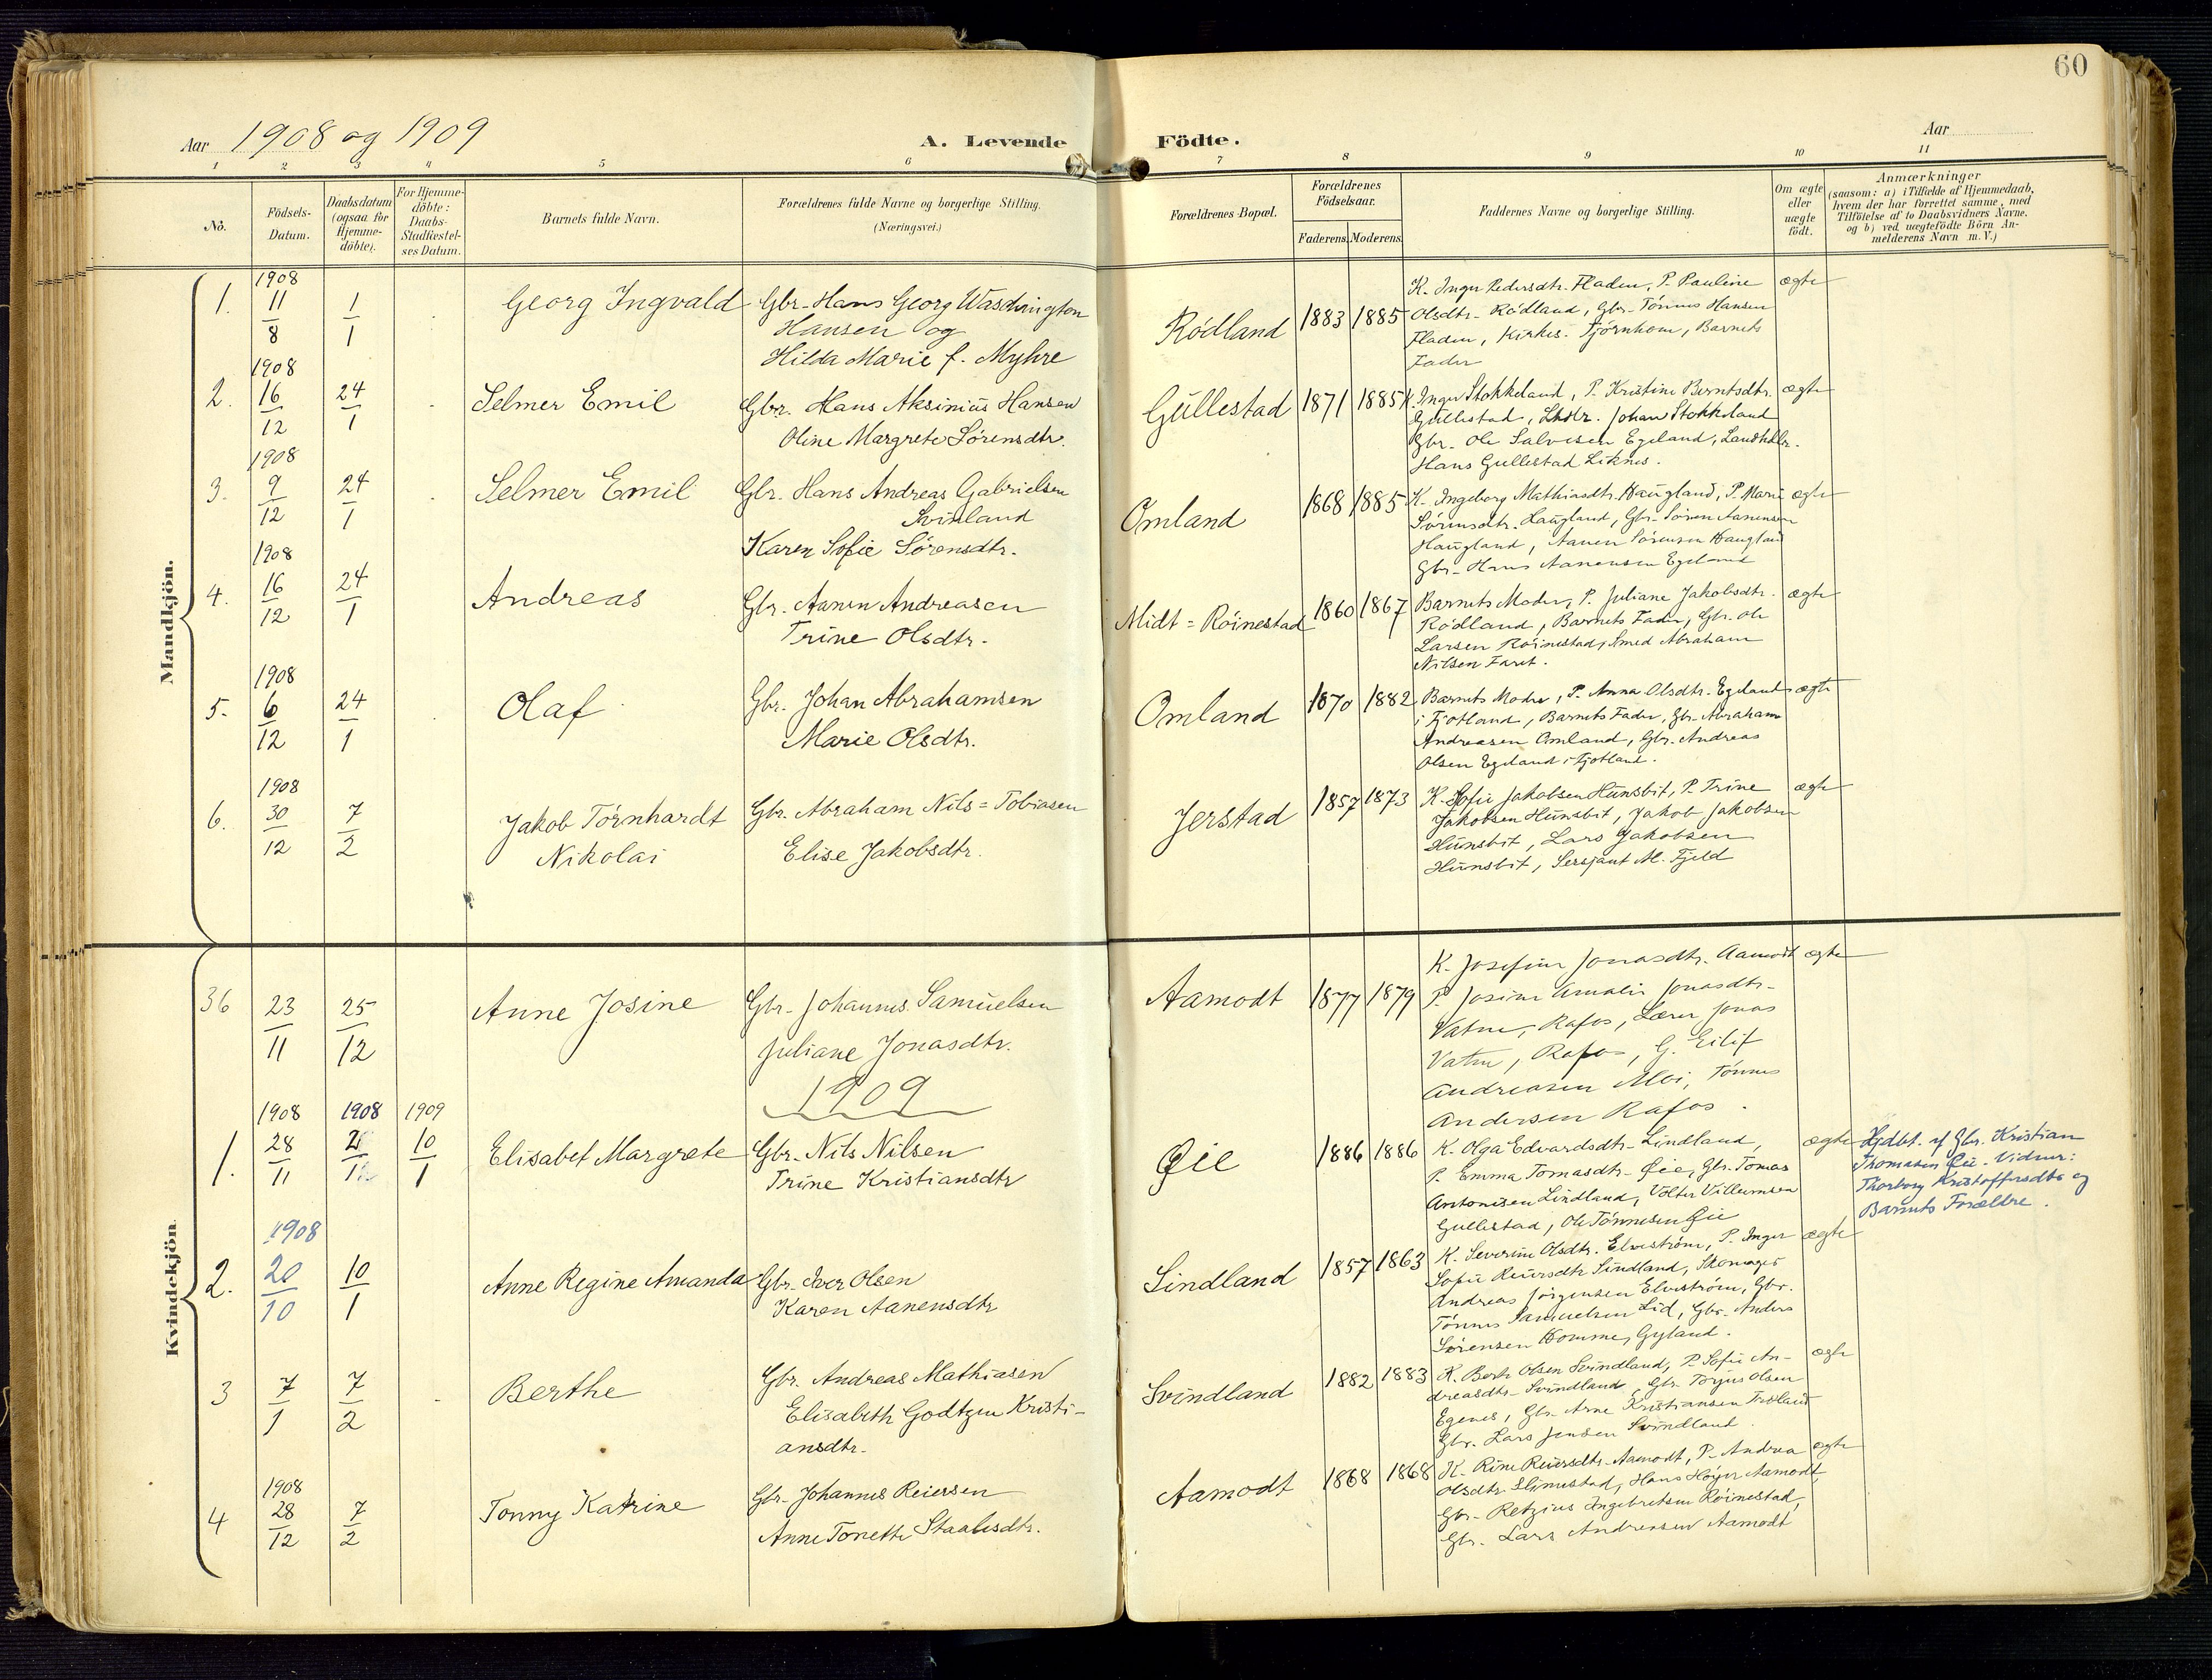 60
Aar 1908 og 1909
A. Levende Födte.
Aar
1 2 3 4 5 6 7 8 9 10 11
No.
Födsels-Datum.
Daabsdatum (ogsaa for Hjemme-döbte).
For Hjemme-döbte: Daabs-Stadfæstel-ses Datum.
Barnets fulde Navn.
Forældrenes fulde Navne og borgerlige Stilling.
(Næringsvei.)
Forældrenes Bopæl.
Forældrenes Födselsaar.
Faderens. Moderens.
Faddernes Navne og borgerlige Stilling.
Om ægte eller uægte födt.
Anmærkninger
(saasom: a) i Tilfælde af Hjemmedaab,
hvem der har forrettet samme, med
Tilföielse af to Daabsvidners Navne.
og b) ved uægtefödte Börn An-
melderens Navn m. V.)
Mandkjön.
1. 1908 11/8 1/1 Georg Ingvald
Gbr. Hans Georg Waschington
Hansen og
Hilda Marie f. Myhre
Rödland 1883 1885
K. Inger Pedersdtr. Fladen, P. Pauline
Olsdtr. Rödland, Gbr. Tönnes Hansen
Fladen, Kirkes. Tjörnhom, Barnets
Fader
ægte
2. 1908 16/12 24/1 Selmer Emil
Gbr. Hans Aksinius Hansen
Oline Margrete Sörensdtr.
Gullestad 1871 1885
K. Inger Stokkeland, P. Kristine Berntsdtr.
Gullestad, Lhdlr. Johan Stokkeland
Gbr. Ole Salvesen Egeland, Landhdlr.
Hans Gullestad Liknes.
ægte
3. 1908 9/12 24/1 Selmer Emil
Gbr. Hans Andreas Gabrielsen
Svinland
Karen Sofie Sörensdtr.
Omland 1868 1885
K. Ingeborg Mathiasdtr. Haugland, P. Marie
Sörensdtr. Haugland, Gbr. Sören Aanensen
Haugland, Aanen Sörensen Haugland
Gbr. Hans Aanensen Egeland
ægte
4. 1908 16/12 24/1 Andreas
Gbr. Aanen Andreasen
Trine Olsdtr.
Midt=Röinestad 1860 1867
Barnets Moder, P. Juliane Jakobsdtr.
Rödland, Barnets Fader, Gbr. Ole
Larsen Röinestad, Smed Abraham
Nilsen Faret.
ægte
5. 1908 6/12 24/1 Olaf
Gbr. Johan Abrahamsen
Marie Olsdtr.
Omland 1870 1882
Barnets Moder, P. Anna Olsdtr. Egeland
i Fjotland, Barnets Fader, Gbr. Abraham
Andreasen Omland, Gbr. Andreas
Olsen Egeland i Fjotland.
ægte
6. 1908 30/12 7/2 Jakob Törnhardt
Nikolai
Gbr. Abraham Nils=Tobiasen
Elise Jakobsdtr.
Jerstad 1857 1873
K. Sofie Jakobsen Hunsbit, P. Trine
Jakobsen Hunsbit, Jakob Jakobsen
Hunsbit, Lars Jakobsen
Hunsbit, Sersjant M. Fjeld
ægte
Kvindekjön.
36 23/11 25/12 Anne Josine
Gbr. Johannes Samuelsen
Juliane Jonasdtr.
Aamodt 1877 1879
K. Josefine Jonasdtr. Aamodt
P. Josine Amalie Jonasdtr.
Vatne, Rafos, Lærer Jonas
Vatne, Rafos, G. Eilif
Andreasen Moi, Tönnes
Andersen Rafos.
ægte
1909
1. 1908 28/11 1908 1909 10/1 Elisabet Margrete
Gbr. Nils Nilsen
Trine Kristiansdtr
Øie 1886 1886
K. Olga Edvardsdtr. Lindland,
P. Emma Tomasdtr. Øie, Gbr. Tomas
Antonisen Lindland, Volter Villumsen
Gullestad, Ole Tönnesen Øie
ægte
Hjdbt. af Gbr. Kristian
Thomasen Øie. Vidner:
Thorborg Kristoffersdtr og
Barnets Forældre.
2. 1908 20/10 10/1 Anne Regine Amanda
Gbr. Iver Olsen
Karen Aanensdtr
Lindland 1857 1863
K. Severine Olsdtr. Elveström, P. Inger
Sofie Reiersdtr Lindland, Skomager
Andreas Jörgensen Elveström, Gbr.
Tönnes Samuelsen Lid, Gbr. Anders
Sörensen Homme, Gyland.
ægte
3 7/1 7/2 Berthe
Gbr. Andreas Mathiasen
Elisabeth Godtzen Kristi-
ansdtr.
Svindland 1882 1883
K. Berte Olsen Svindland, P. Sofie An-
dreasdtr. Svindland, Gbr. Torjus Olsen
Egenes, Gbr. Arne Kristiansen
Gbr. Lars Jensen Svindland.
ægte
4 1908 28/12 7/2 Tonny Katrine
Gbr. Johannes Reiersen
Anne Tonette Staalesdtr.
Aamodt 1868 1868
K. Rine Reiersdtr. Aamodt, P. Andrea
Olsdtr. Slimestad, Hans Höyer Aamodt,
Gbr. Retzius Ingebretsen Röinestad,
Gbr. Lars Andreasen Aamodt
ægte